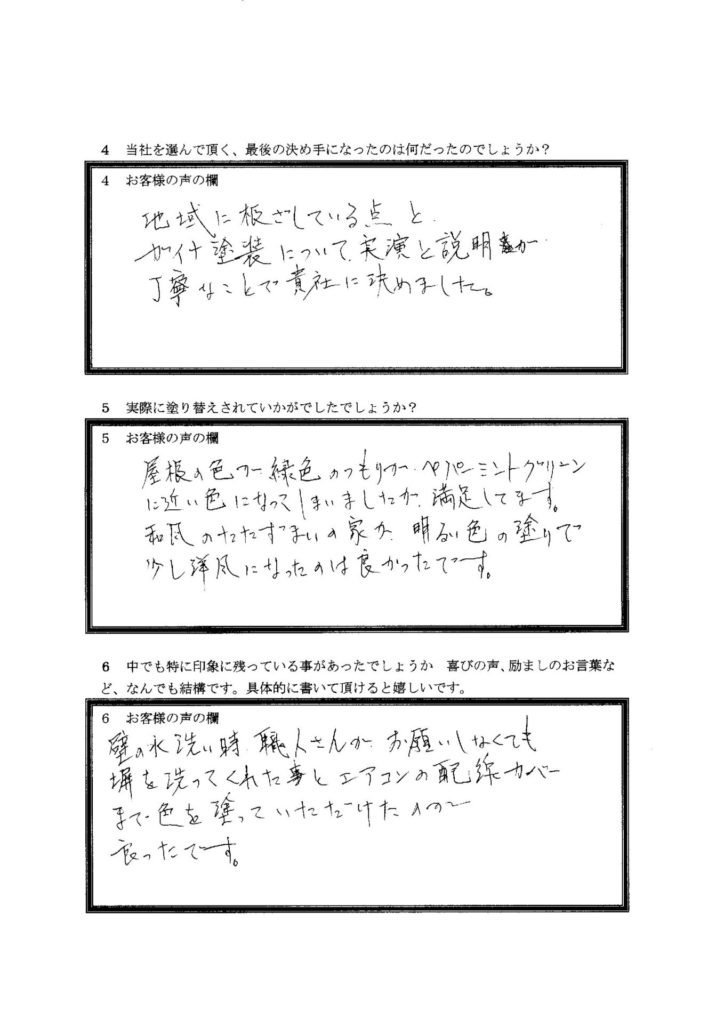 4 当社を選んで頂く、最後の決め手になったのは何だったのでしょうか？
4 お客様の声の欄
地域に板ざしている点と
ガイナ塗装について、実演と説明が
丁寧なことで貴社に決めました。
5 実際に塗り替えされていかがでしたでしょうか？
5 お客様の声の欄
屋根の色が緑色のつもりが、ペパーミントグリーン
に近い色になってしまいましたが、満足してます。
和風のたたずまいの家が、明るい色の塗りで
少し洋風になったのは良かったです。
6 中でも特に印象に残っている事があったでしょうか 喜びの声、励ましのお言葉な
ど、なんでも結構です。具体的に書いて頂けると嬉しいです。
6 お客様の声の欄
壁の水洗い時、職人さんが、お願いしなくても
塀を洗ってくれた事とエアコンの配線カバー
まで色を塗っていただけたので
良ったです。